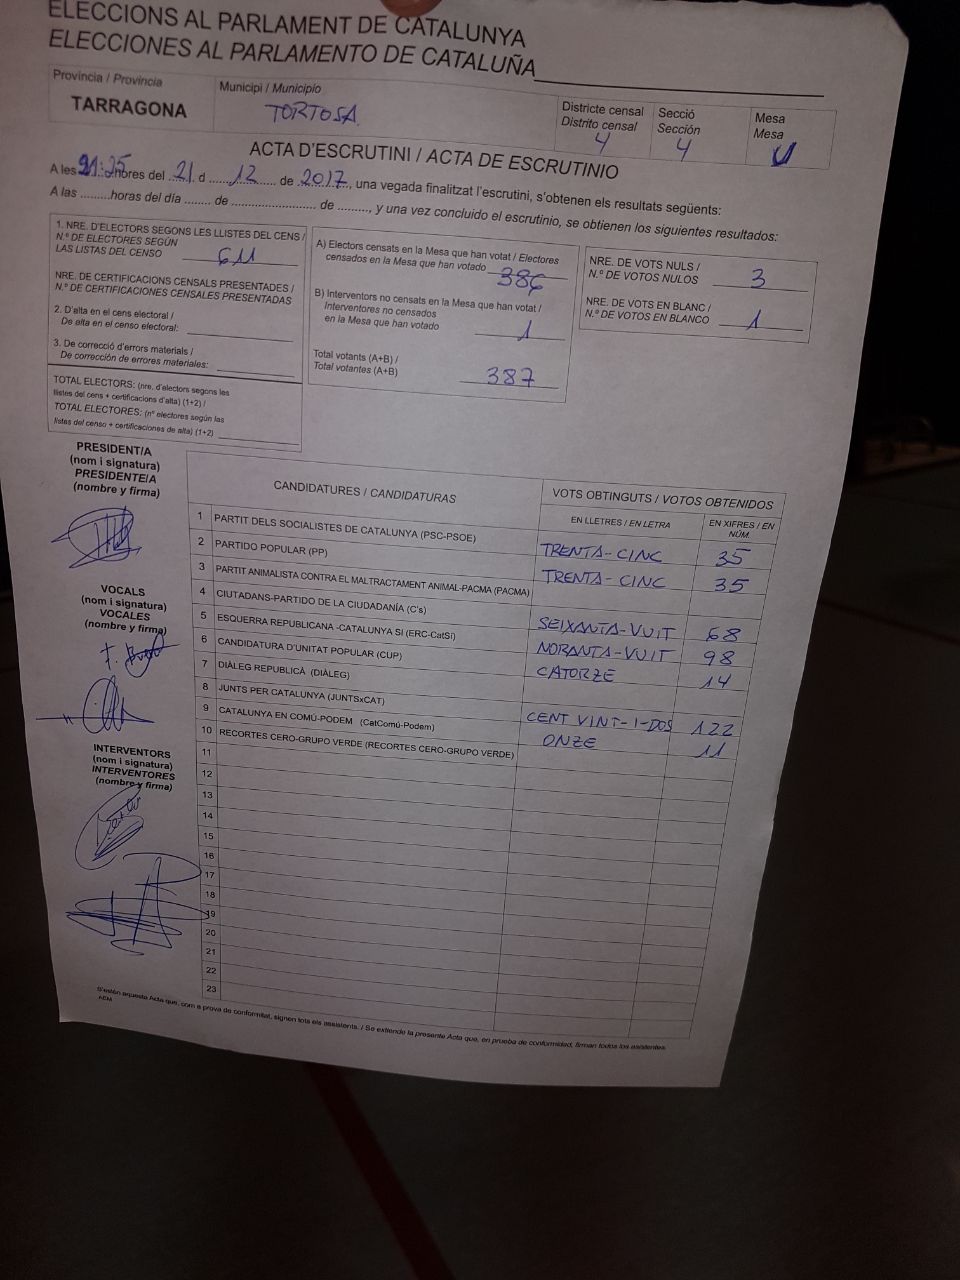 ELECCIONS AL PARLAMENT DE CATALUNYA
ELECCIONES AL PARLAMENTO DE CATALUÑA
Provincia / Provincia
TARRAGONA
Municipi / Municipio
TORTOSA
Districte censal
Distrito censal
4
Secció
Sección
4
Mesa
Mesa
U
ACTA D'ESCRUTINI / ACTA DE ESCRUTINIO
A les 21:25 hores del 21 d 12 de 2017, una vegada finalitzat l'escrutini, s'obtenen els resultats següents:
A las .........horas del día ....... de ........................ de ........., y una vez concluido el escrutinio, se obtienen los siguientes resultados:
1. NRE. D'ELECTORS SEGONS LES LLISTES DEL CENS /
N.º DE ELECTORES SEGÚN
LAS LISTAS DEL CENSO 611
NRE. DE CERTIFICACIONS CENSALS PRESENTADES /
N.º DE CERTIFICACIONES CENSALES PRESENTADAS
2. D'alta en el cens electoral /
De alta en el censo electoral:
3. De correcció d'errors materials /
De corrección de errores materiales:
TOTAL ELECTORS: (nre. d'electors segons les
llistes del cens + certificacions d'alta) (1+2) /
TOTAL ELECTORES: (nº electores según las
listas del censo + certificaciones de alta) (1+2)
A) Electors censats en la Mesa que han votat / Electores
censados en la Mesa que han votado 386
B) Interventors no censats en la Mesa que han votat /
Interventores no censados
en la Mesa que han votado 1
Total votants (A+B) /
Total votantes (A+B) 387
NRE. DE VOTS NULS /
N.º DE VOTOS NULOS 3
NRE. DE VOTS EN BLANC /
N.º DE VOTOS EN BLANCO 1
PRESIDENT/A
(nom i signatura)
PRESIDENTE/A
(nombre y firma)
VOCALS
(nom i signatura)
VOCALES
(nombre y firma)
INTERVENTORS
(nom i signatura)
INTERVENTORES
(nombre y firma)
CANDIDATURES / CANDIDATURAS
VOTS OBTINGUTS / VOTOS OBTENIDOS
EN LLETRES / EN LETRA
EN XIFRES / EN NÚM.
1 PARTIT DELS SOCIALISTES DE CATALUNYA (PSC-PSOE) TRENTA-CINC 35
2 PARTIDO POPULAR (PP) TRENTA-CINC 35
3 PARTIT ANIMALISTA CONTRA EL MALTRACTAMENT ANIMAL-PACMA (PACMA)
4 CIUTADANS-PARTIDO DE LA CIUDADANÍA (C's) SEIXANTA-VUIT 68
5 ESQUERRA REPUBLICANA -CATALUNYA SI (ERC-CatSí) NORANTA-VUIT 98
6 CANDIDATURA D'UNITAT POPULAR (CUP) CATORZE 14
7 DIÀLEG REPUBLICÀ (DIÀLEG)
8 JUNTS PER CATALUNYA (JUNTSxCAT) CENT VINT-I-DOS 122
9 CATALUNYA EN COMÚ-PODEM (CatComú-Podem) ONZE 11
10 RECORTES CERO-GRUPO VERDE (RECORTES CERO-GRUPO VERDE)
11
12
13
14
15
16
17
18
19
20
21
22
23
S'estén aquesta Acta que, com a prova de conformitat, signen tots els assistents. / Se extiende la presente Acta que, en prueba de conformidad, firman todos los asistentes